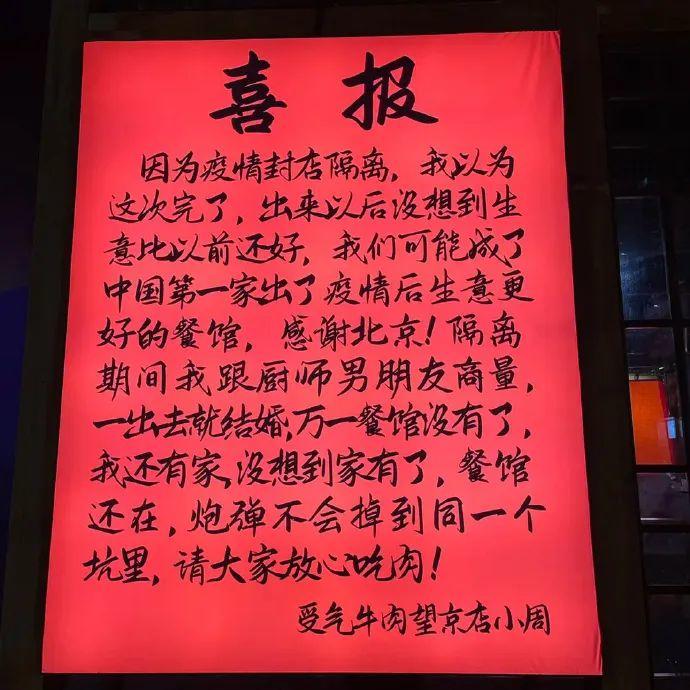 喜报
因为疫情封店隔离，我以为
这次完了，出来以后没想到生
意比以前还好，我们可能成了
中国第一家出了疫情后生意更
好的餐馆，感谢北京！隔离
期间我跟厨师男朋友商量，
一出去就结婚，万一餐馆没有了，
我还有家，没想到家有了，餐馆
还在，炮弹不会掉到同一个
坑里，请大家放心吃肉！
受气牛肉望京店小周